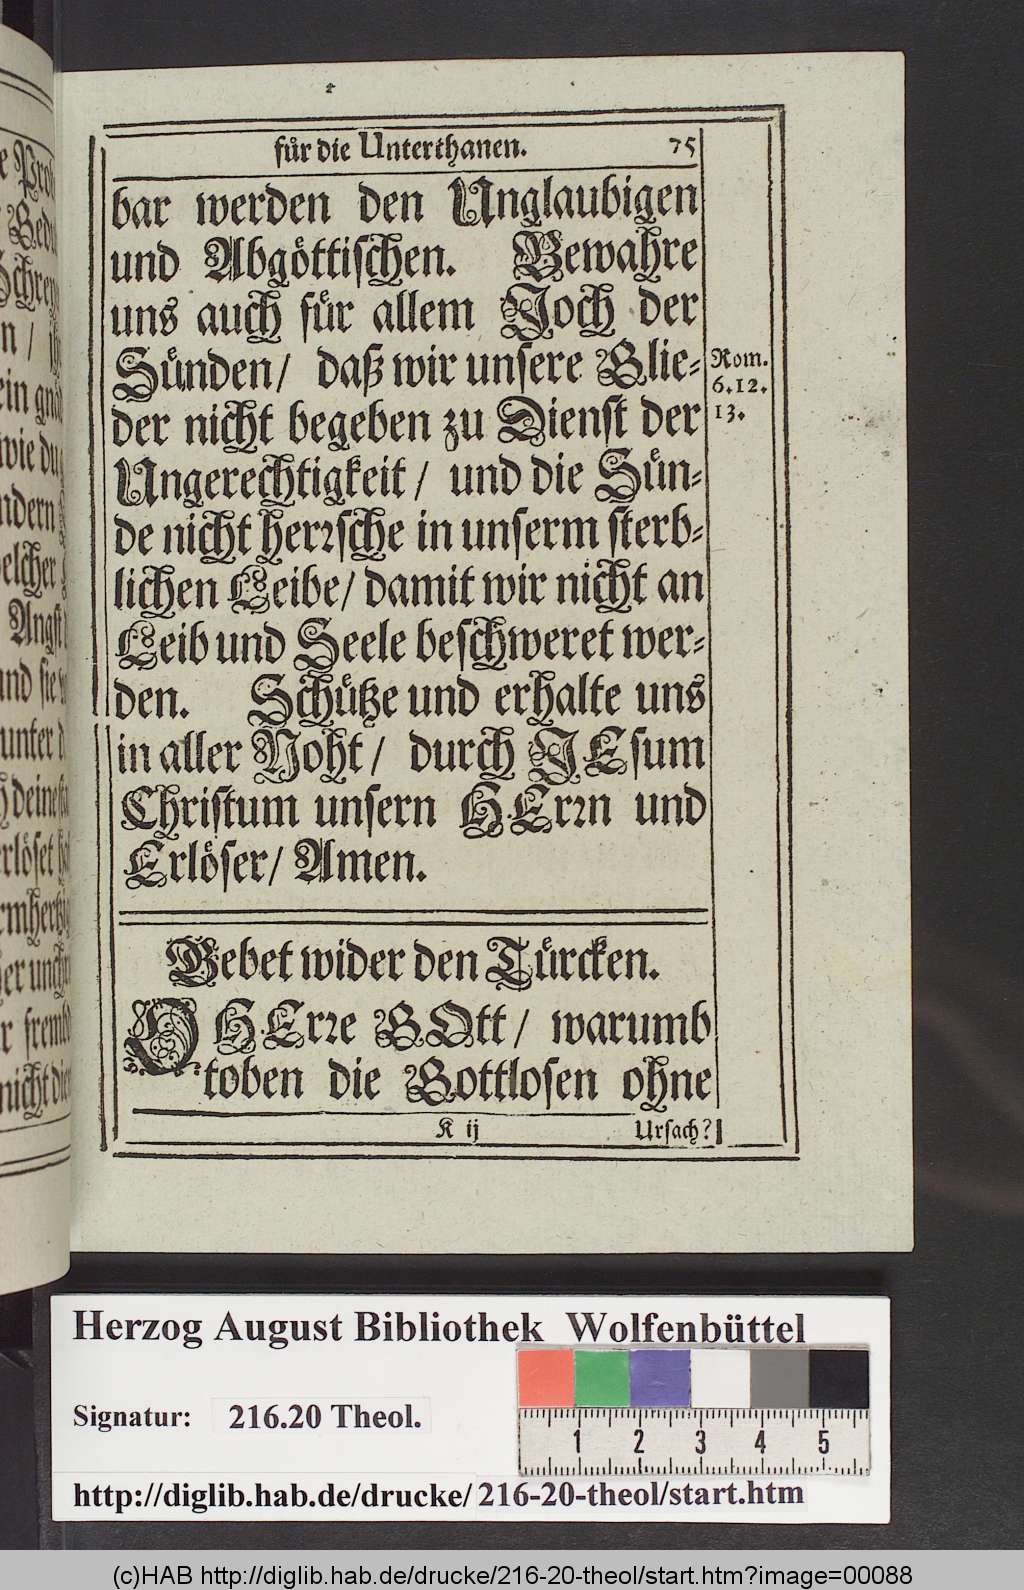 für die Unterthanen. 75
bar werden den Unglaubigen
und Abgöttischen. Bewahre
uns auch für allem Joch der
Sünden/ daß wir unsere Glie-
der nicht begeben zu Dienst der
Ungerechtigkeit/ und die Sün-
de nicht herꝛsche in unserm sterb-
lichen Leibe/ damit wir nicht an
Leib und Seele beschweret wer-
den. Schütze und erhalte uns
in aller Noht/ durch JEsum
Christum unsern HErꝛn und
Erlöser/ Amen.
Rom.
6.12.
13.
Gebet wider den Türcken.
O HErꝛe GOtt/ warumb
toben die Gottlosen ohne
K ij Ursach?
wie du
ndern
elcher
Angst
und sie
unter d
erlöset
nicht
Herzog August Bibliothek Wolfenbüttel
Signatur: 216.20 Theol.
1 2 3 4 5
http://diglib.hab.de/drucke/216-20-theol/start.htm
(c)HAB http://diglib.hab.de/drucke/216-20-theol/start.htm?image=00088